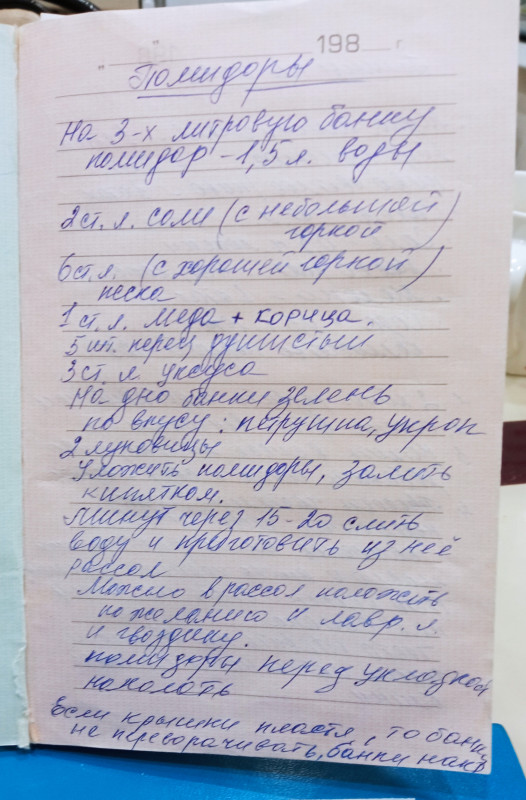 " " 198 г
Помидоры
На 3-х литровую банку
помидор - 1,5 л. воды
2 ст. л. соли (с небольшей
горкой)
6 ст. л. (с хорошей горкой)
песка
1 ст. л. меда + корица.
5 шт. перец душистый
3 ст. л уксуса
На дно банки зелень
по вкусу: петрушка, укроп
2 луковицы
Уложить помидоры, залить
кипятком.
Минут через 15-20 слить
воду и приготовить из неё
рассол
Можно в рассол положить
по желанию и лавр. л.
и гвоздику.
помидоры перед укладкой
наколоть
Если крышки пластя, то банки
не переворачивать, банки накр